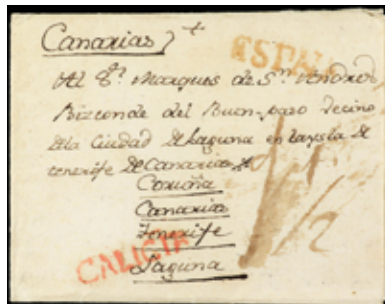 Canarias
ESPAÑA
Al Sr. Marques de Sn. Andres
Bizconde del Buen-paso Vecino
de la Ciudad de Laguna en la ysla de
tenerife de Canarias
Coruña
Canarias
Tenerife
GALICIA
Laguna
1/2